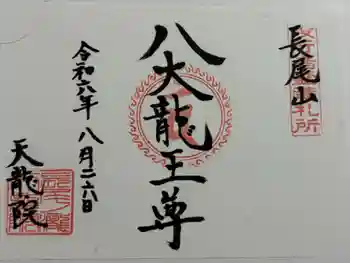 長尾山
八大龍王尊
令和六年八月二六日
天龍院